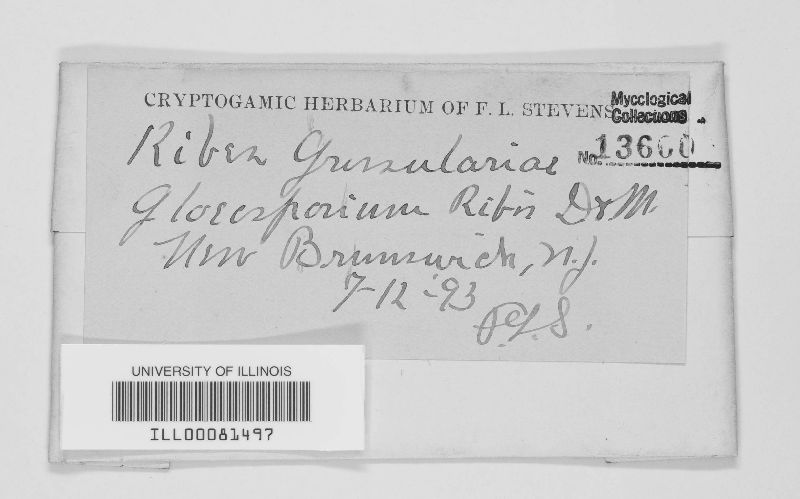 CRYPTOGAMIC HERBARIUM OF F. L. STEVENS
Mycological
Collections
No. 13600
Ribes Grussulariae
Gloeosporium Ribis D & M
New Brunswick, N.J.
7-12-93
F.L.S.
UNIVERSITY OF ILLINOIS
ILL00081497